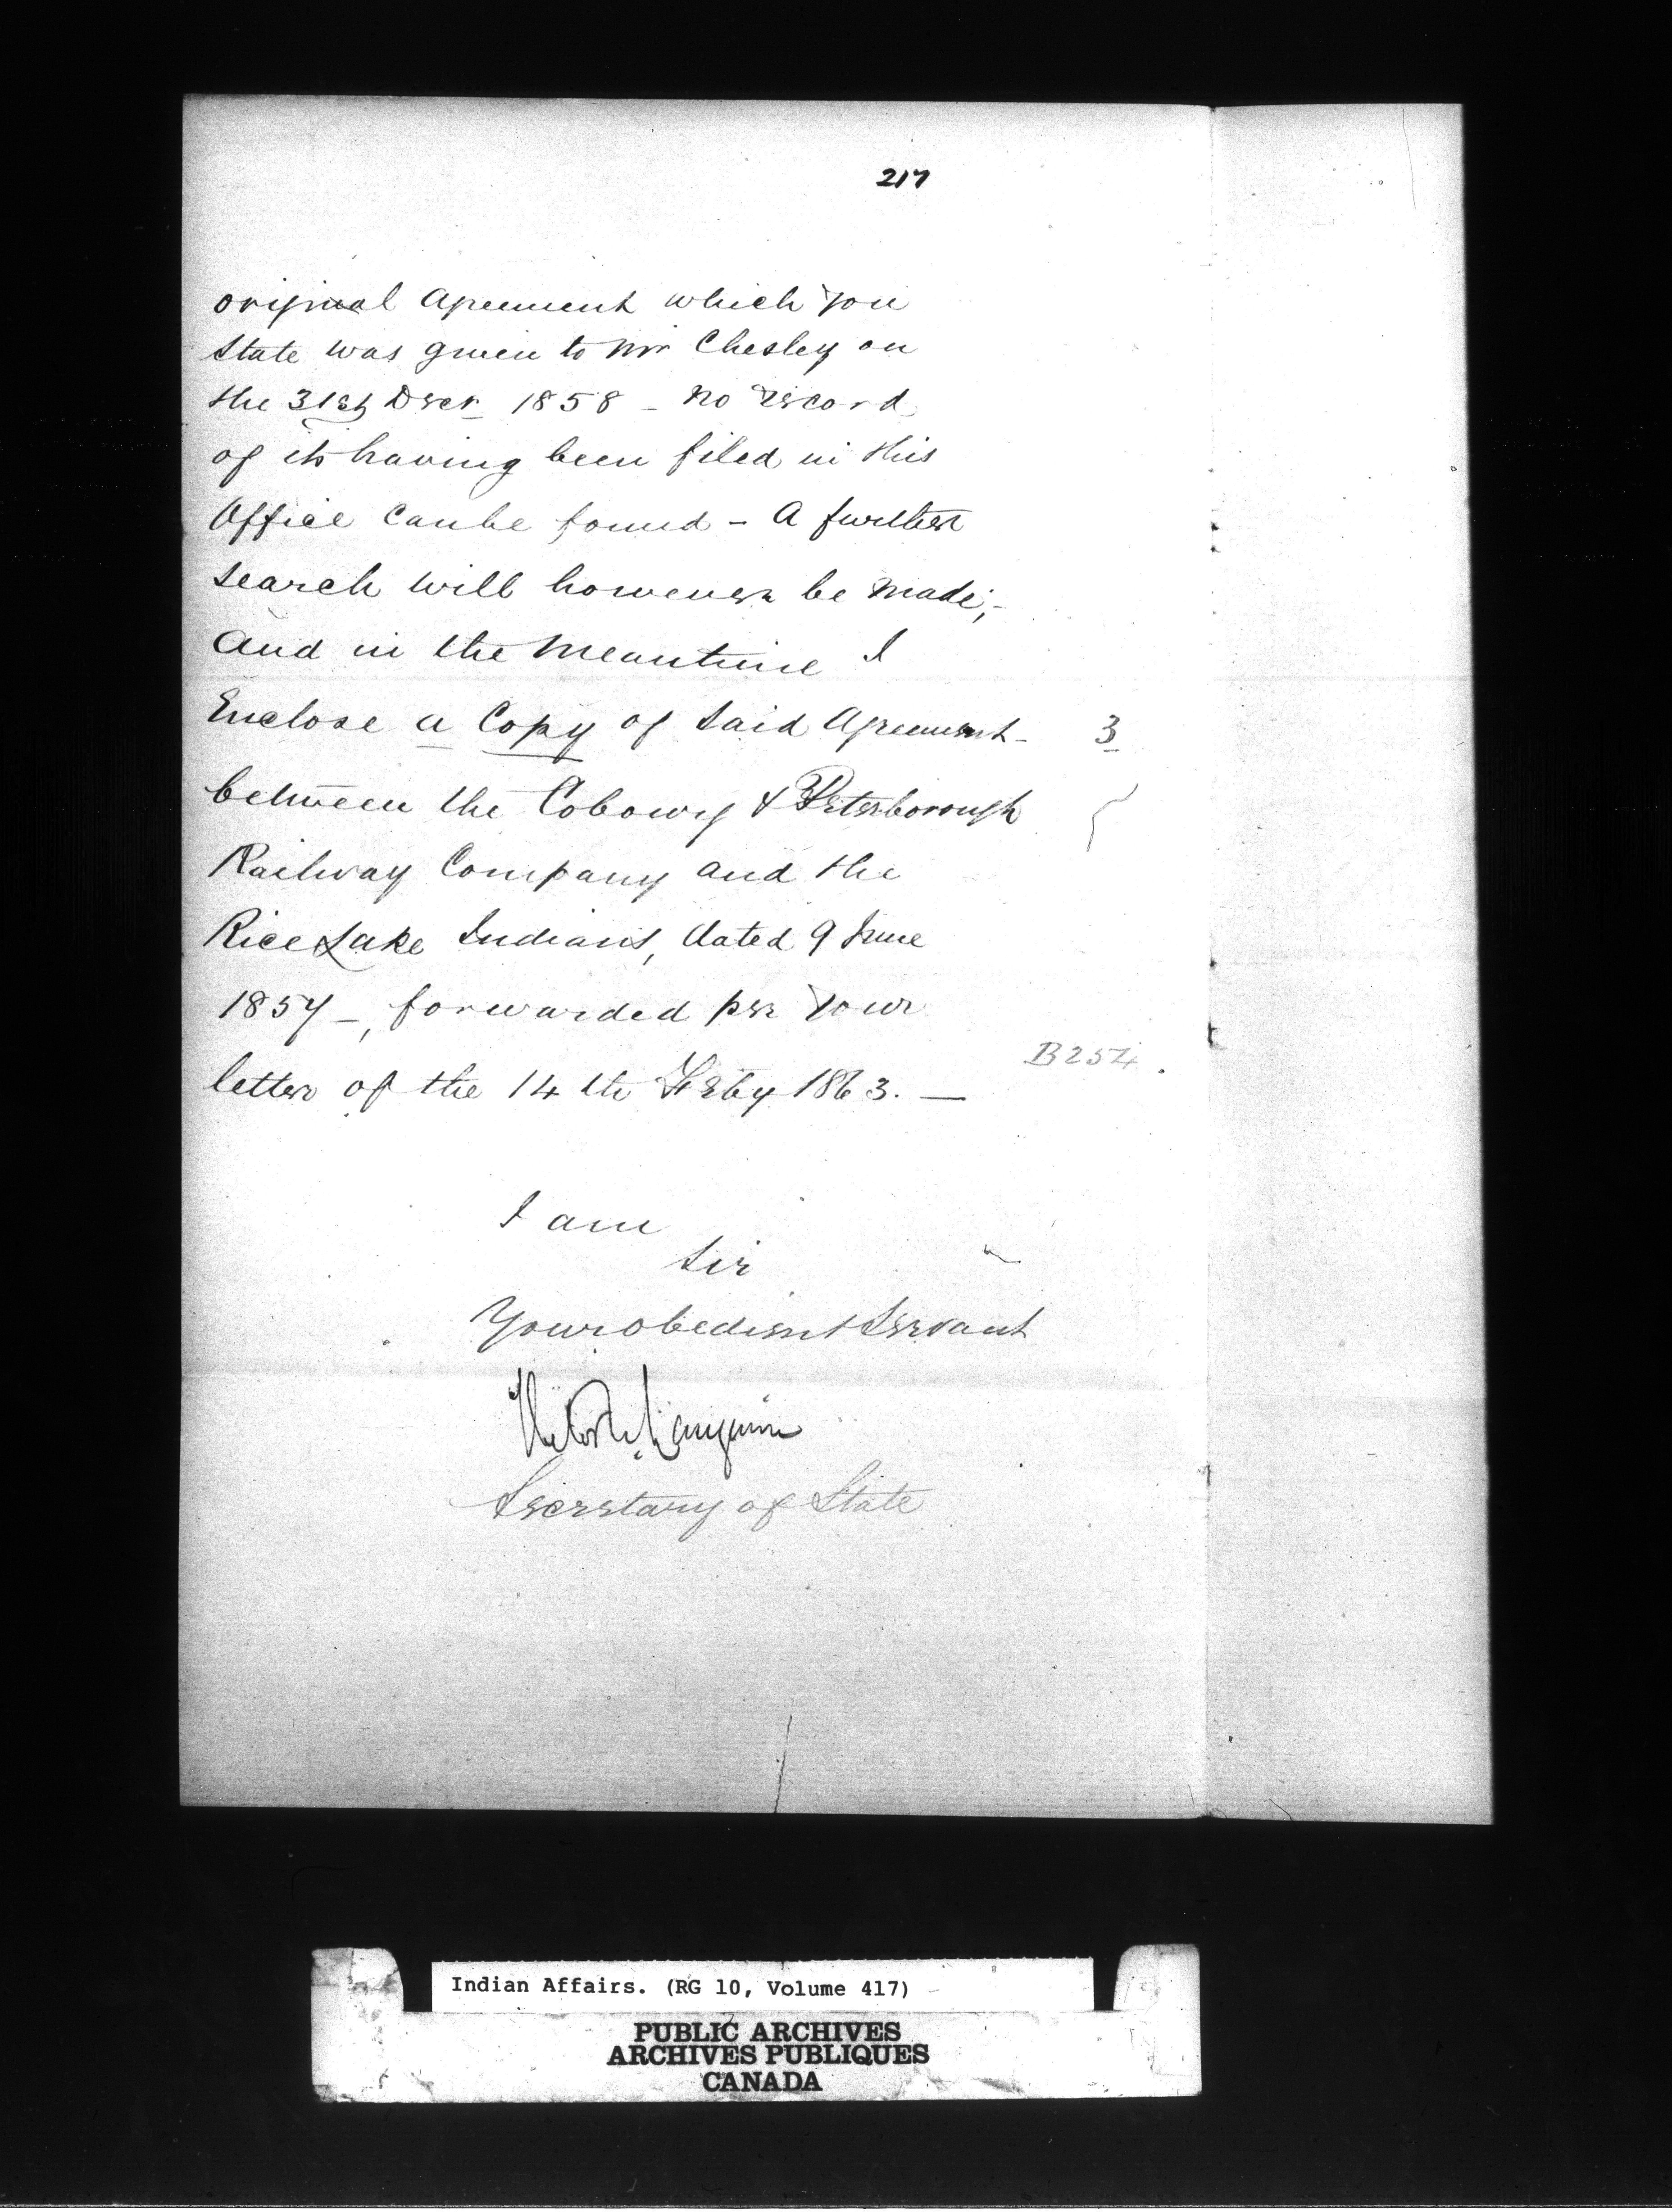 217
original Agreement which you
State was given to Mr Chesley on
the 31st Decr 1858 - no record
of its having been filed in this
Office can be found - A further
search will however be made;-
And in the meantime I
Enclose a Copy of said Agreement - 3
between the Cobourg & Peterborough
Railway Company and the
Rice Lake Indians, dated 9 June
1857 -, forwarded per your
B254.
letter of the 14th Feby 1863. —
I am
Sir
Your obedient Servant
Hector L. Langevin
Secretary of State
Indian Affairs. (RG 10, Volume 417)
PUBLIC ARCHIVES
ARCHIVES PUBLIQUES
CANADA